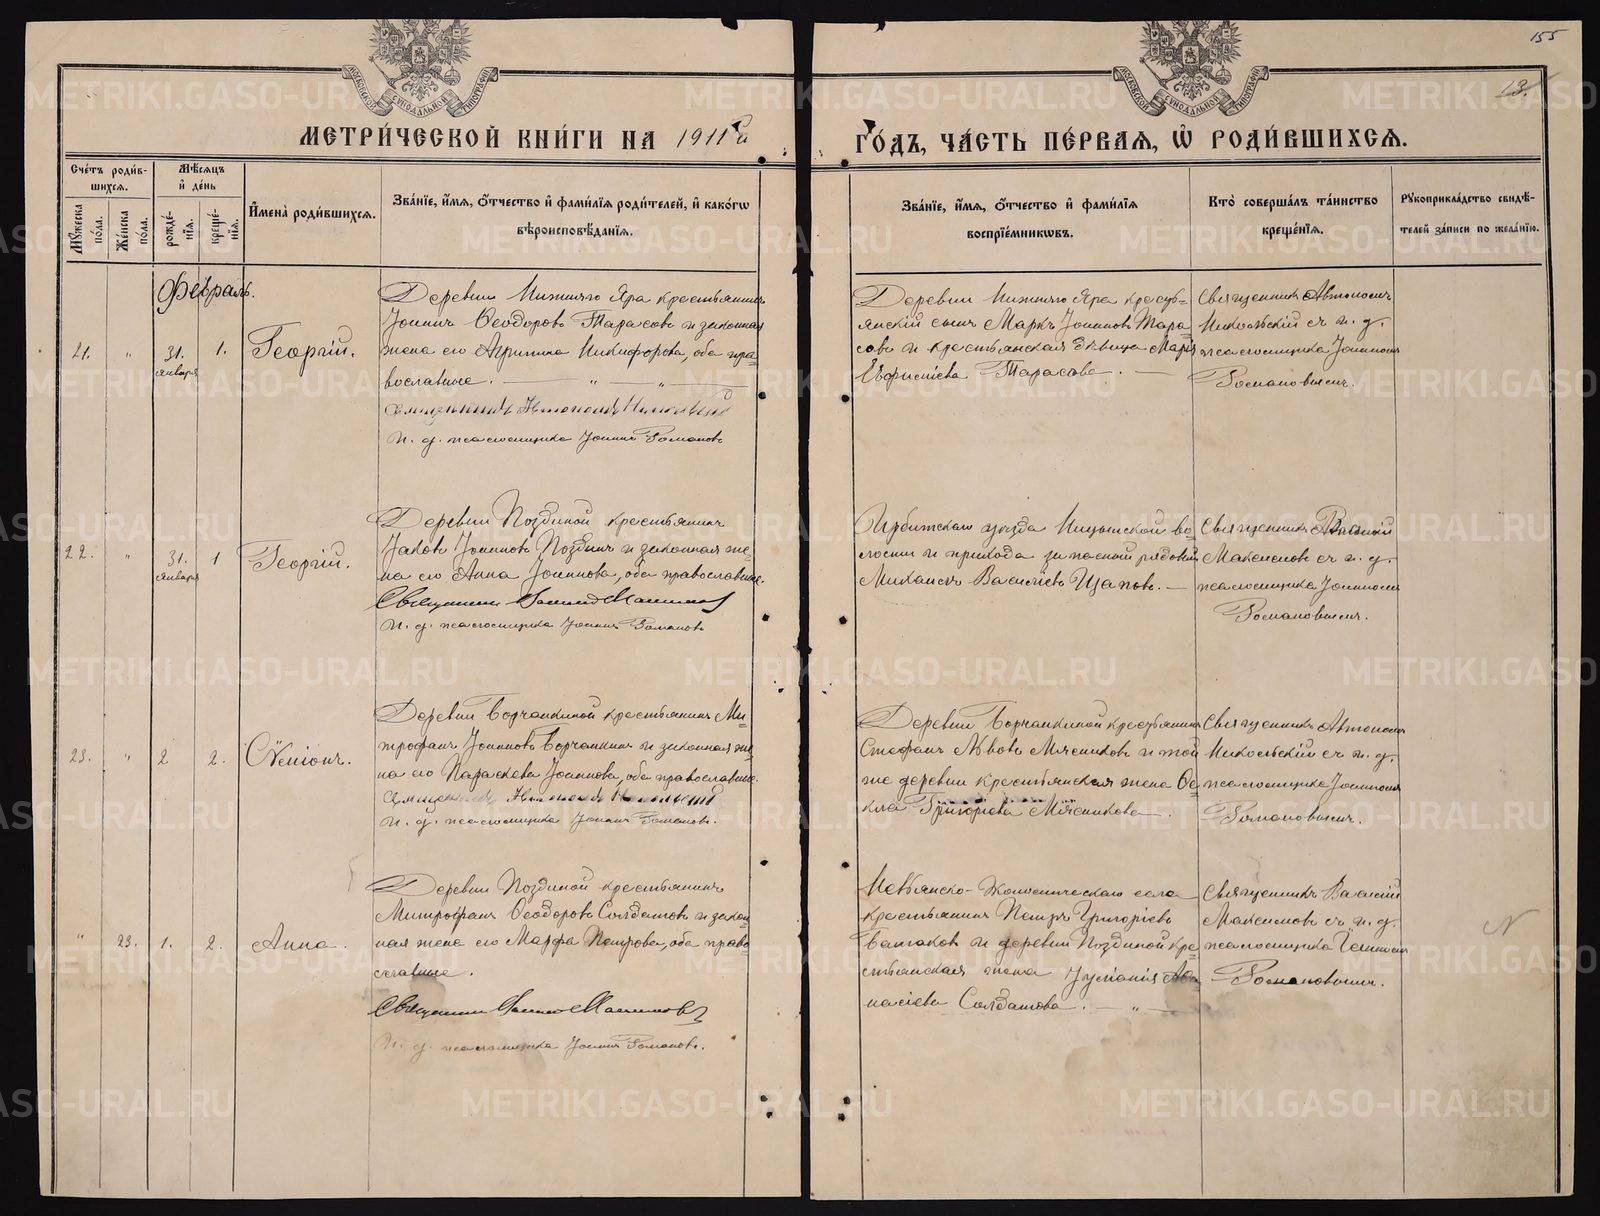 155
13.
МЕТРИ́ЧЕСКОЙ КНИ́ГИ НА 1911й
ГО́ДЪ, ЧА́СТЬ ПЕ́РВАЯ, Ѡ РОДИ́ВШИХСЯ.
Сче́тъ роди́в-
шихся.
Мѣ́сяцъ
и҆ де́нь
Му́жеска
по́ла.
Же́нска
по́ла.
рожде́-
нїя.
креще́-
нїя.
И҆мена̀ роди́вшихся.
Зва́нїе, и҆́мя, ѻ҆́тчество и҆ фами́лїя роди́телей, и҆ како́гѡ
вѣроисповѣ́данїя.
Зва́нїе, и҆́мя, ѻ҆́тчество и҆ фами́лїя
воспрїе́мникѡвъ.
Кто̀ соверша́лъ та́инство
креще́нїя.
Рꙋкоприкла́дство свидѣ́-
телей за́писи по жела́нїю.
Февраль.
21.
"
31.
января
1.
Георгій.
Деревни Нижняго Яра крестьянинъ
Іоаннъ Ѳеодоровъ Тарасовъ и законная
жена его Агрипина Никифорова, оба пра-
вославные. — " — " —
Священникъ Автономъ Никольскій
И. д. псаломщика Іоаннъ Романовъ
Деревни Нижняго Яра кресть-
янскій сынъ Маркъ Іоанновъ Тара
совъ и крестьянская дѣвица Марія
Евфимієва Тарасова. —
Священникъ Автономъ
Никольскій съ и. д.
псаломщика Іоанномъ
Романовымъ.
22.
"
31.
января
1
Георгій.
Деревни Поздиной крестьянинъ
Іаковъ Іоанновъ Поздинъ и законная же-
на его Анна Іоаннова, оба православные.
Священникъ Василій Максимовъ
И. д. псаломщика Іоаннъ Романовъ
Ирбитскаго уѣзда Ницынской во-
лости и прихода запасный рядовой
Михаилъ Василіевъ Щаповъ. —
Священникъ Василій
Максимовъ съ и. д.
псаломщика Іоанномъ
Романовымъ.
23.
"
2
2.
Сѵмеонъ.
Деревни Борчаниной крестьянинъ Ми-
трофанъ Іоанновъ Борчанинъ и законная же-
на его Параскева Іоаннова, оба православные.
Священникъ Автономъ Никольскій
И. д. псаломщика Іоаннъ Романовъ.
Деревни Борчаниной крестьянинъ
Стефанъ Львовъ Мясниковъ и той
же деревни крестьянская жена Ѳе-
кла Григоріева Мясникова.
Священникъ Автономъ
Никольскій съ и. д.
псаломщика Іоанномъ
Романовымъ.
"
23.
1.
2.
Анна.
Деревни Поздиной крестьянинъ
Митрофанъ Ѳеодоровъ Солдатовъ и закон-
ная жена его Марфа Петрова, оба право-
славные.
Священникъ Василій Максимовъ
И. д. псаломщика Іоаннъ Романовъ.
крестьянинъ Петръ Григоріевъ
и деревни Поздиной кре-
стьянская жена Іуліанія
Солдатова. — " —
Священникъ Василій
Максимовъ съ и. д.
псаломщика Іоанномъ
Романовымъ.
N
METRIKI.GASO-URAL.RU